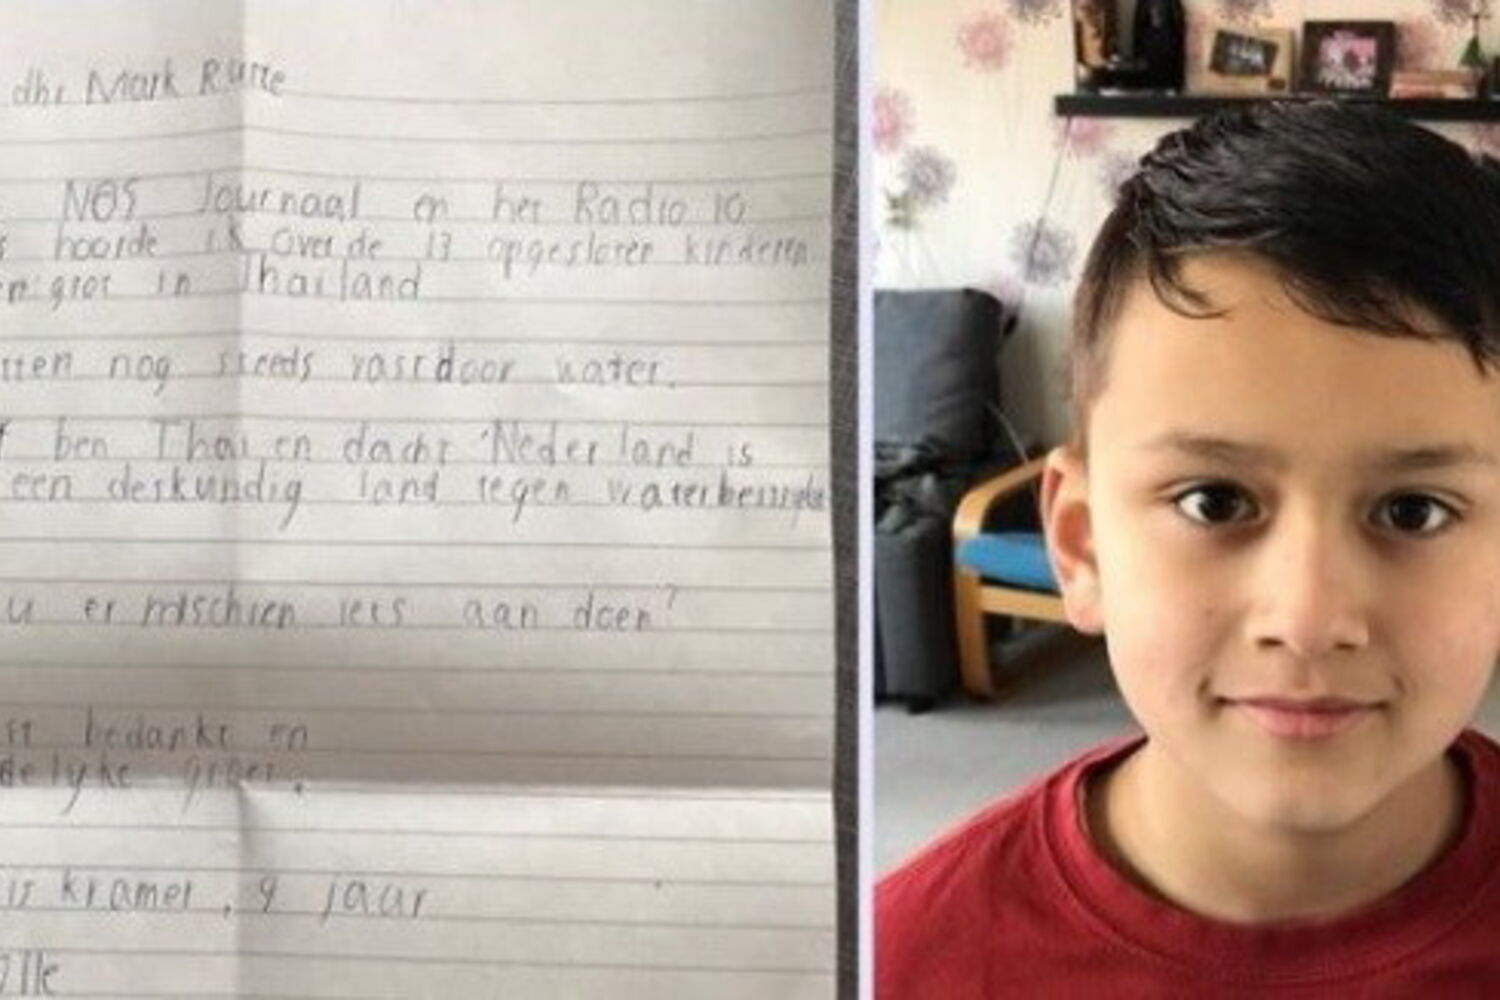 dhr Mark Rutte
NOS Journaal en het Radio 10
hoorde ik over de 13 opgesloten kinderen
grot in Thailand
nog steeds vast door water.
ben Thai en dacht Nederland is
een deskundig land tegen
u er misschien iets aan doen?
bedankt en
groet.
Kramer, 9 jaar